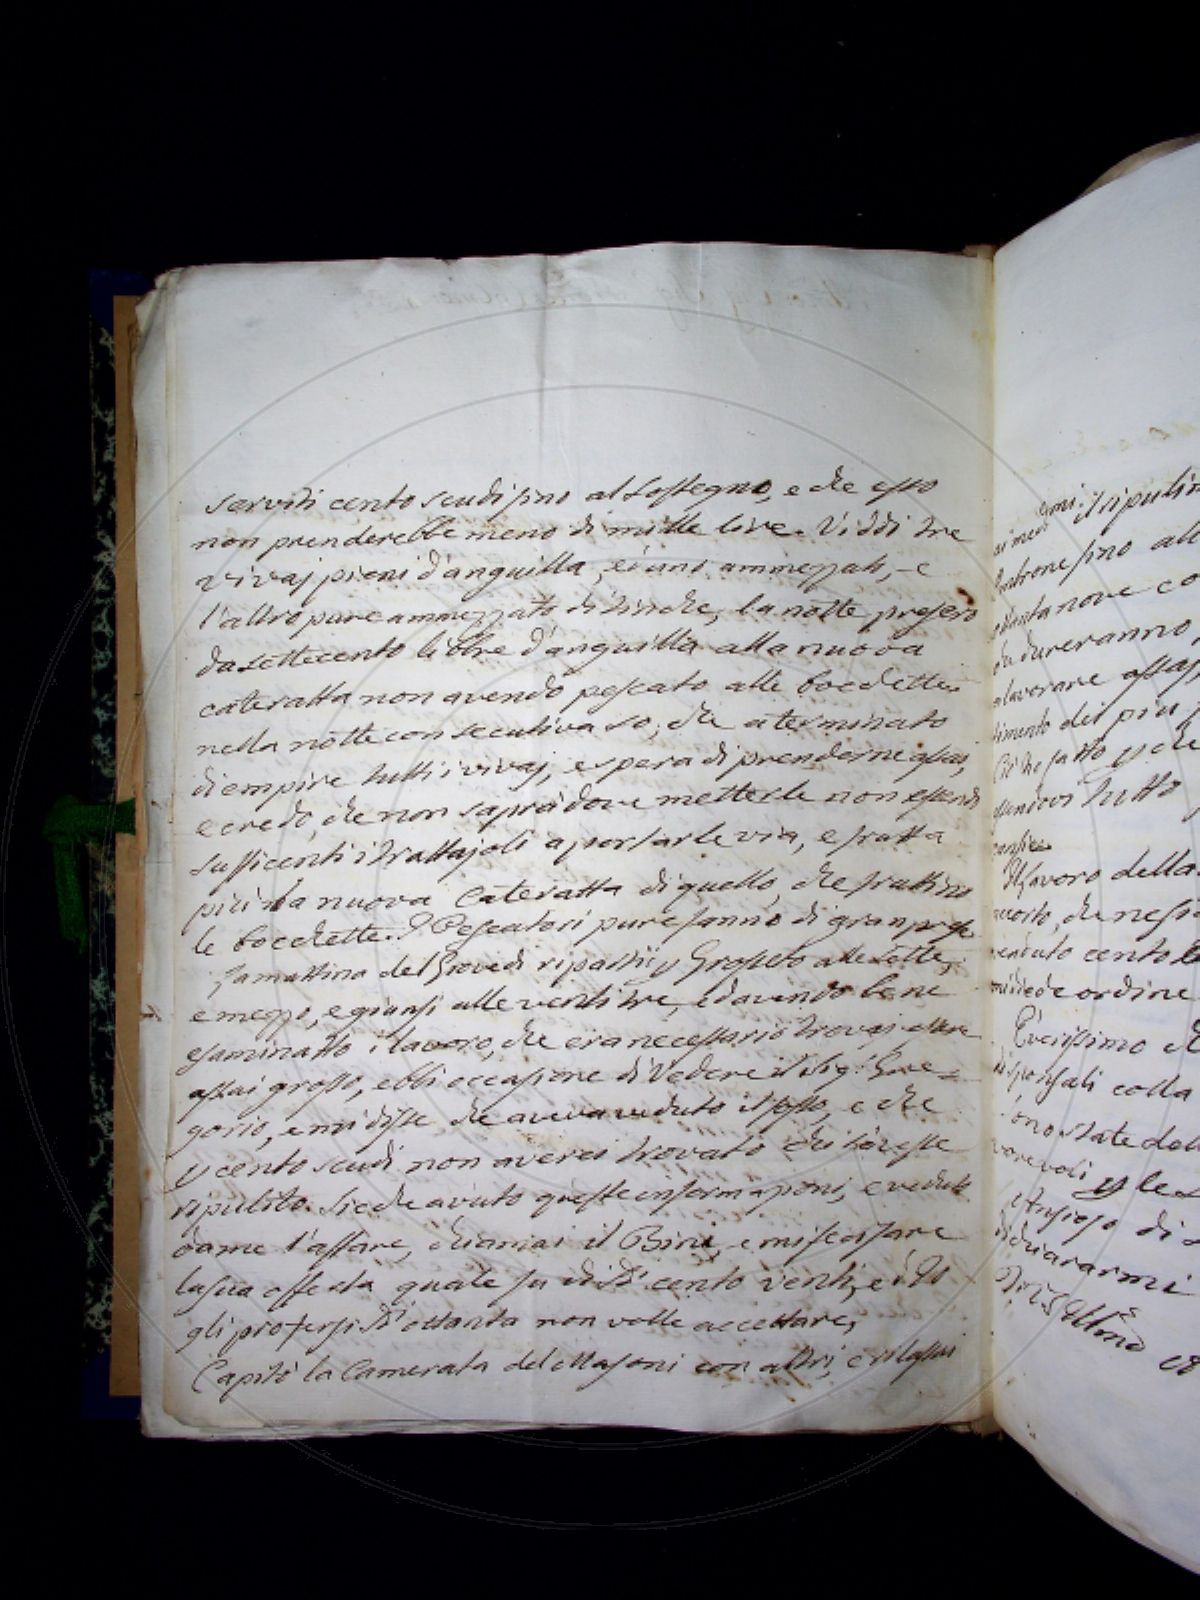 serviti cento scudi sino al Sostegno, e che esso
non prenderebbe meno di mille lire. Viddi tre
vivaj pieni d'anguilla, ed uno ammezzato, e
l'altro pure ammezzato di tinche, la notte presero
da settecento libbre d'anguilla alla nuova
cateratta non avendo pescato alle bocchette
nella notte consecutiva so, che a terminato
di empire tutti i vivaj, e spera di prenderne assai,
e credo, che non saprà dove metterle non essendo
sufficenti i trattajoli a portarle via, e fratta
più la nuova Cateratta di quello, che fruttino
le bocchette. I Pescatori pure fanno di gran prese
La mattina del Giovedì ripartii p Grosseto alle sette,
e mezzo, e giunsi alle venti tre, ed avendo bene
esaminatto il lavoro, che era necessario trovai essere
assai grosso, ebbi occasione di vedere il Sig.r Gre=
gorio, e mi disse che aveva veduto il fosso, e che
p cento scudi non averei trovato chi l'avesse
ripulito. Sicche avuto queste informazioni, e veduto
dame l'affare, chiamai il Bini, e mi feci fare
la sua offerta quale fu di cento venti, e Io
gli profersi ottanta non volle accettare,
Capitò la Camerata del Masoni con altri, e rilassai
il ripulin
sino all
ottanta nove co
dureranno
lavorare assaj,
timento del piu
Ciò ho fatto p che
essendovi tutto
Il lavoro della
cento
chiede ordine
È verissimo ch
sponsali colla
sono state dal
p le
Ansioso di
dichiararmi